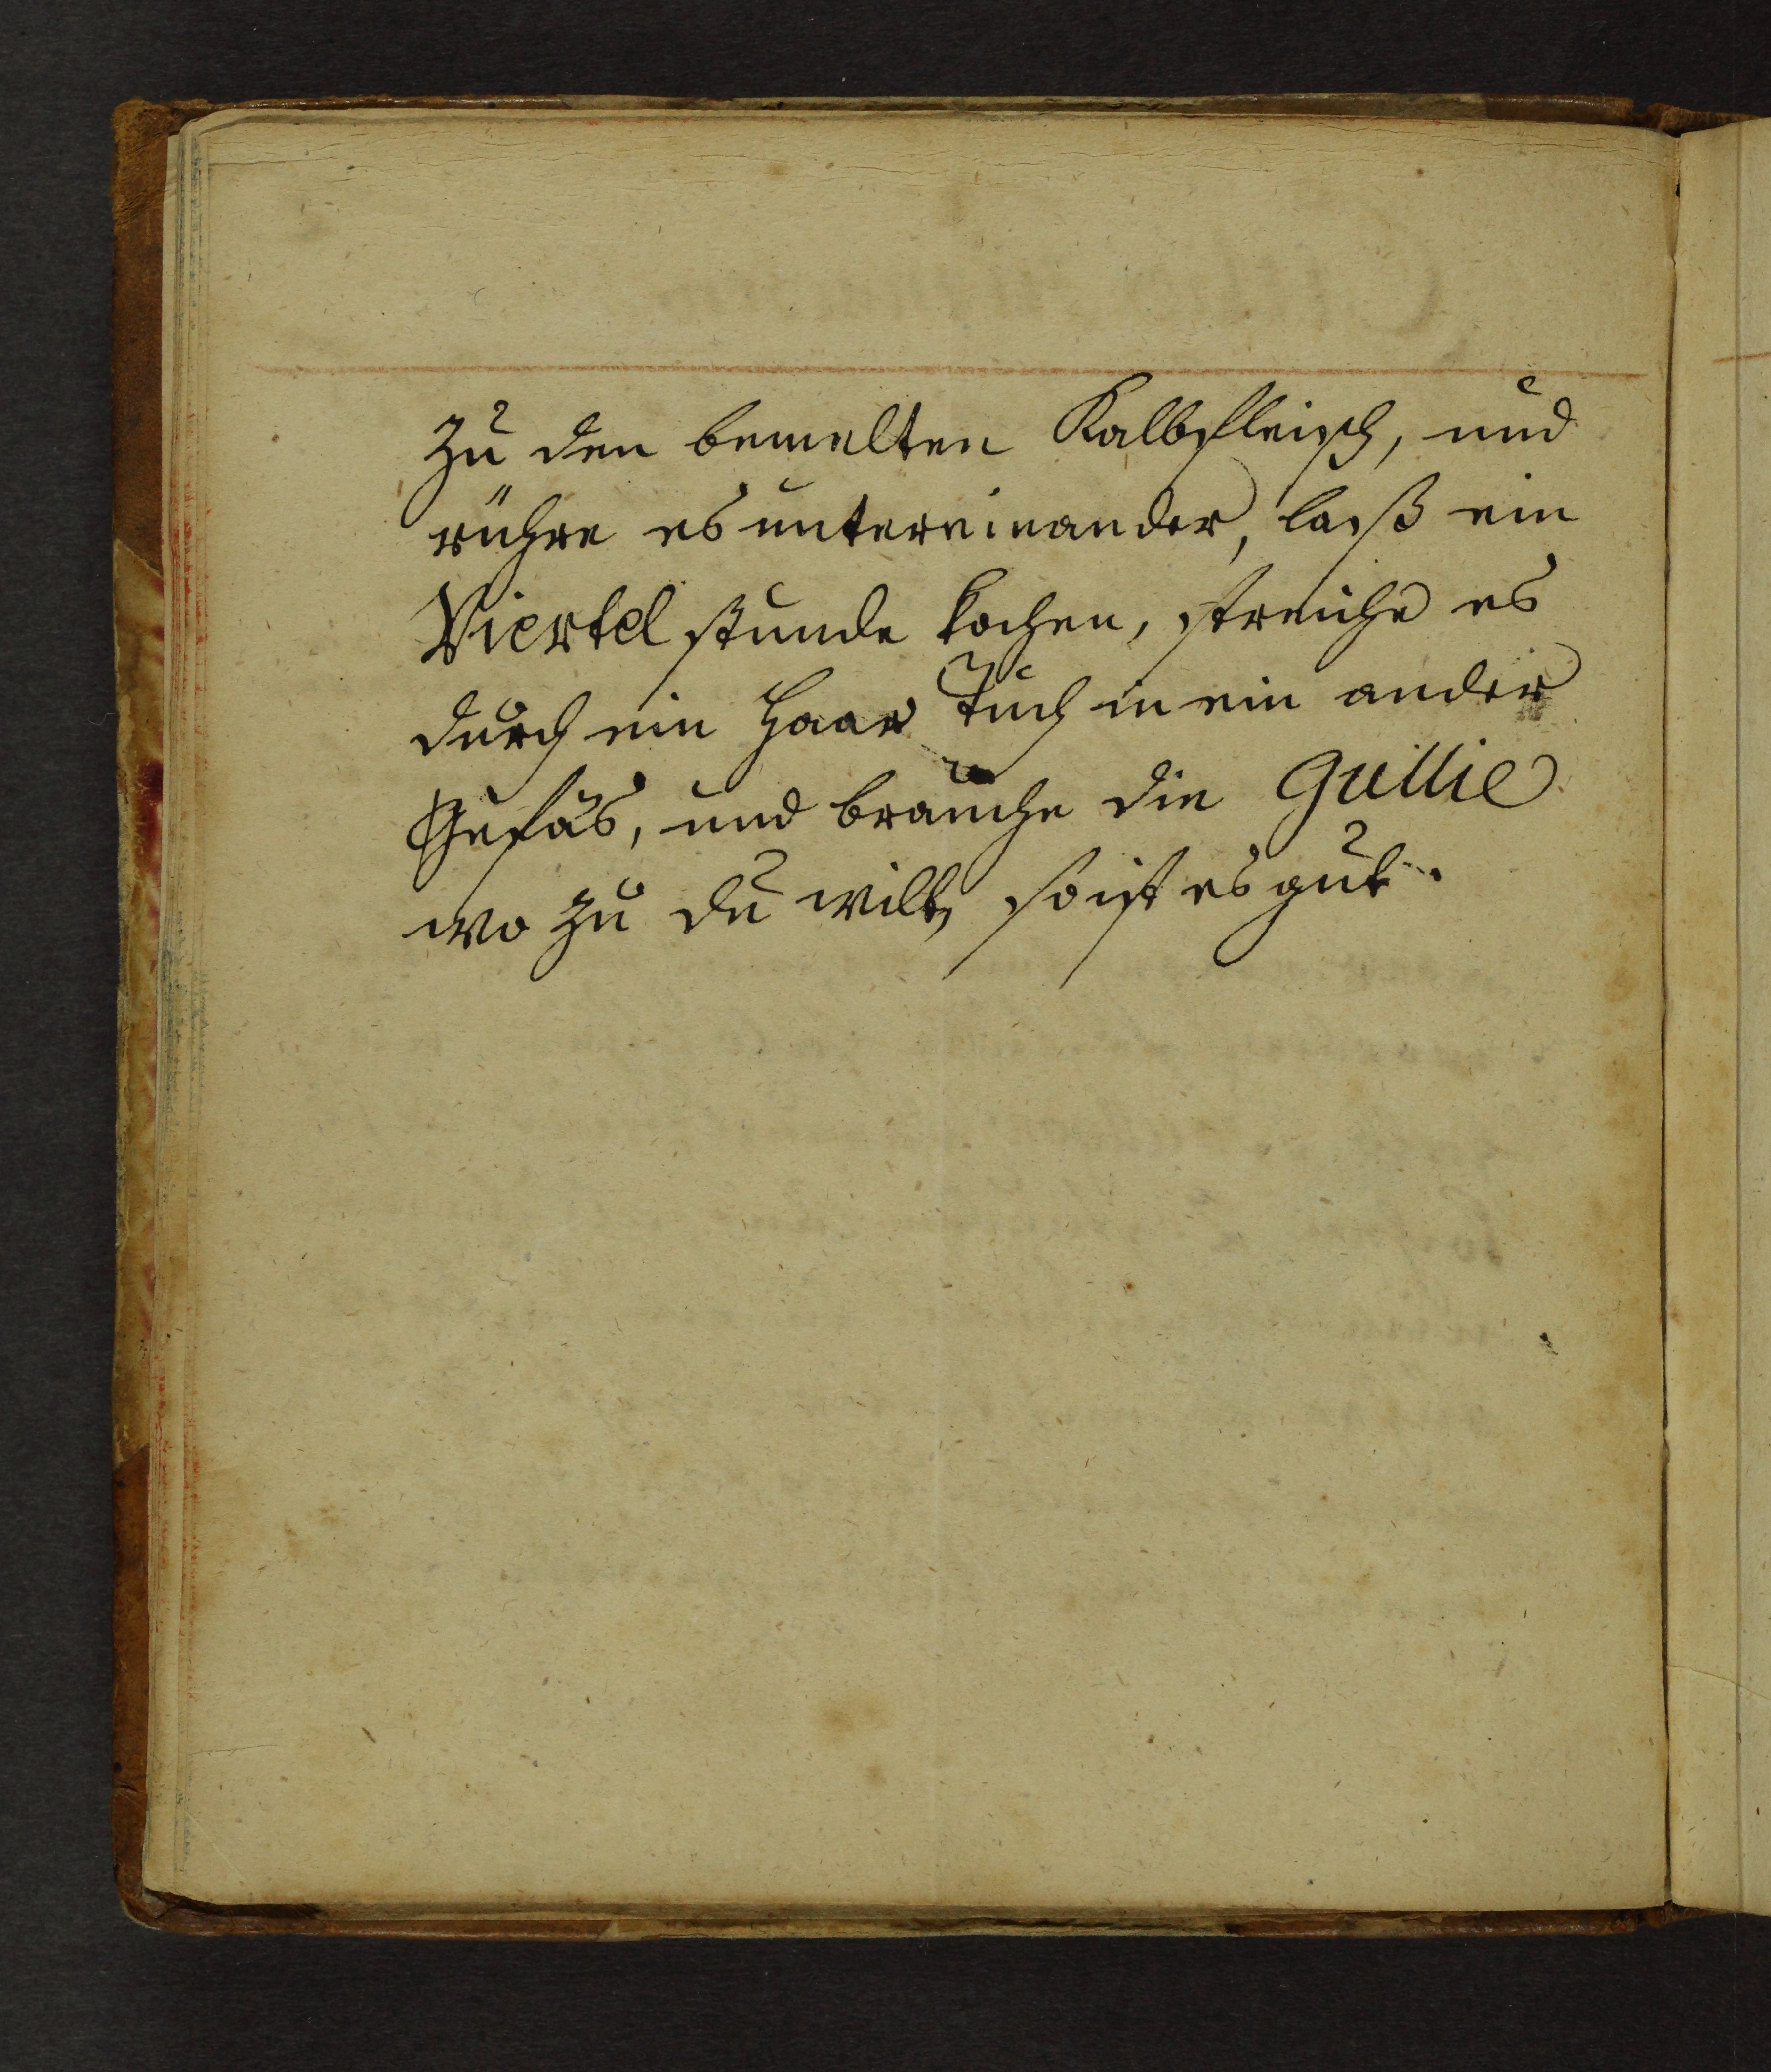 zu den bemelten Kalbfleisch, und
rühre es untereinander, laß ein
Viertel stunde kochen, streiche es
durch ein Haar Tuch in ein ander
Gefäs, und brauche die Gullie
wo zu du wilt, so ist es gut.